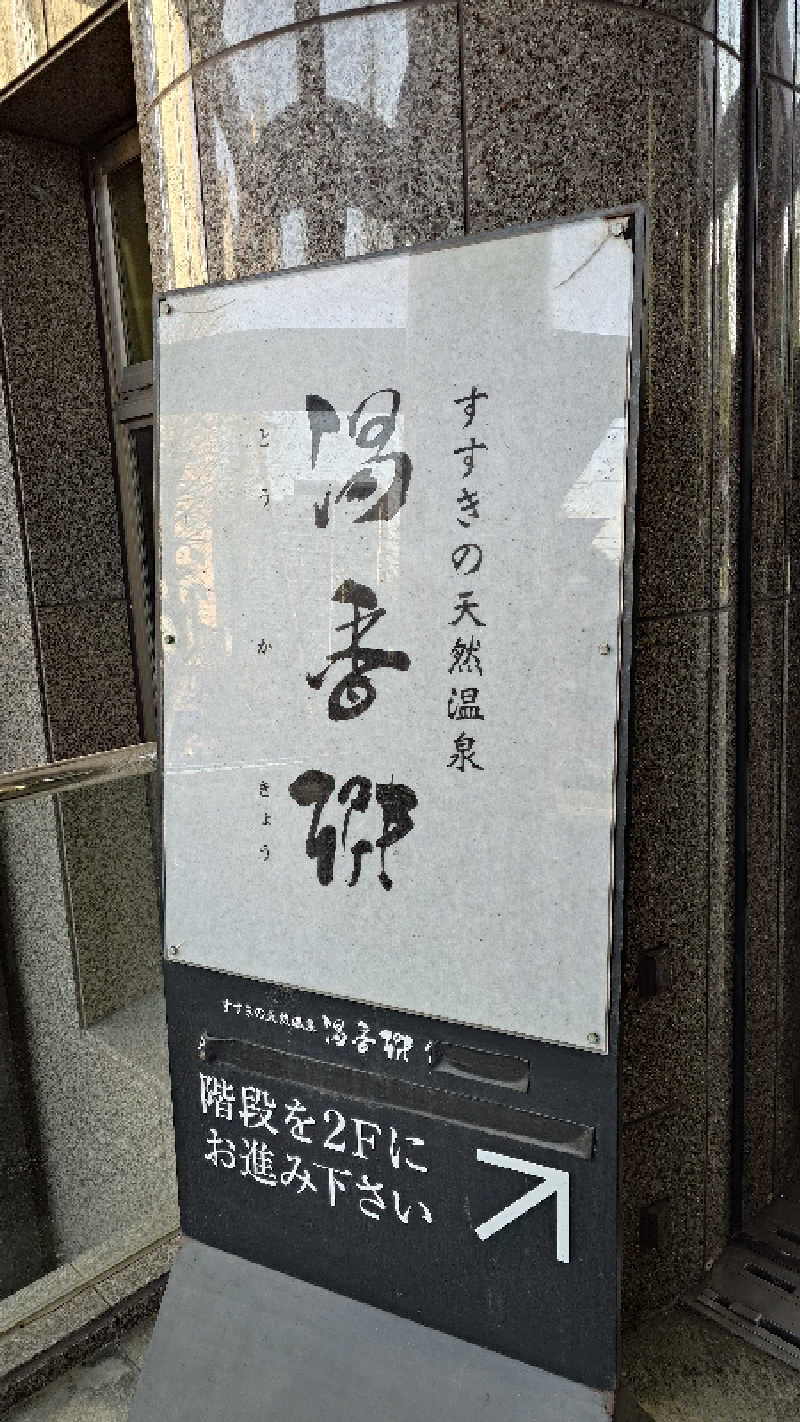 すすきの天然温泉
湯香郷
とうかきょう
すすきの天然温泉 湯香郷
階段を2Fに
お進み下さい